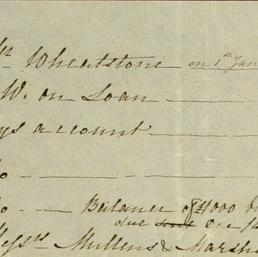 Mr Wheatstone on 1st Jan
W. on Loan
ys account
o
o Balance of £1000
due sent on
Messrs Mullens & Marsh